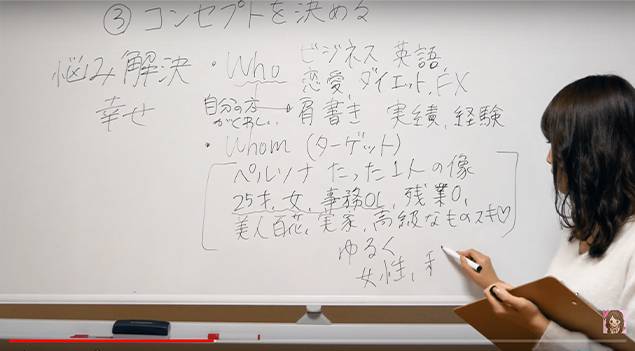 ③ コンセプトを決める
悩み解決
幸せ
・Who ビジネス 英語,
恋愛, ダイエット, FX
自分の方がくわしい
肩書き 実績, 経験
・Whom (ターゲット)
ペルソナ たった1人の像
25才, 女, 事務OL, 残業0,
美人百花, 実家, 高級なものスキ♡
ゆるく
女性,